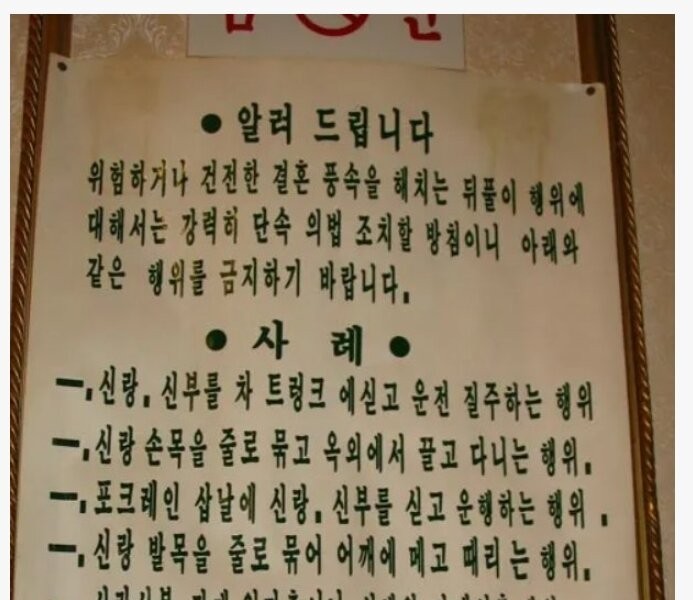 ● 알려 드립니다
위험하거나 건전한 결혼 풍속을 해치는 뒤풀이 행위에
대해서는 강력히 단속 의법 조치할 방침이니 아래와
같은 행위를 금지하기 바랍니다.
● 사 례 ●
一.신랑.신부를 차 트렁크 에싣고 운전 질주하는 행위
一.신랑 손목을 줄로 묶고 옥외에서 끌고 다니는 행위.
一.포크레인 삽날에 신랑.신부를 싣고 운행하는 행위.
一.신랑 발목을 줄로 묶어 어깨에 메고 때리는 행위.